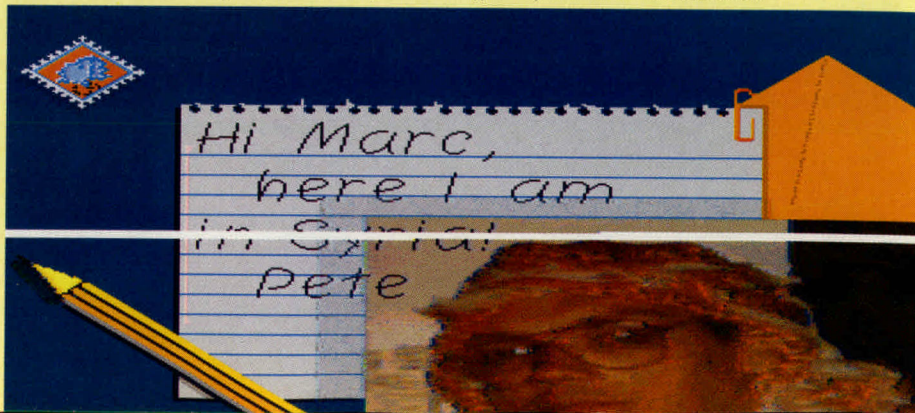 Hi Marc,
here I am
in Syria!
Pete